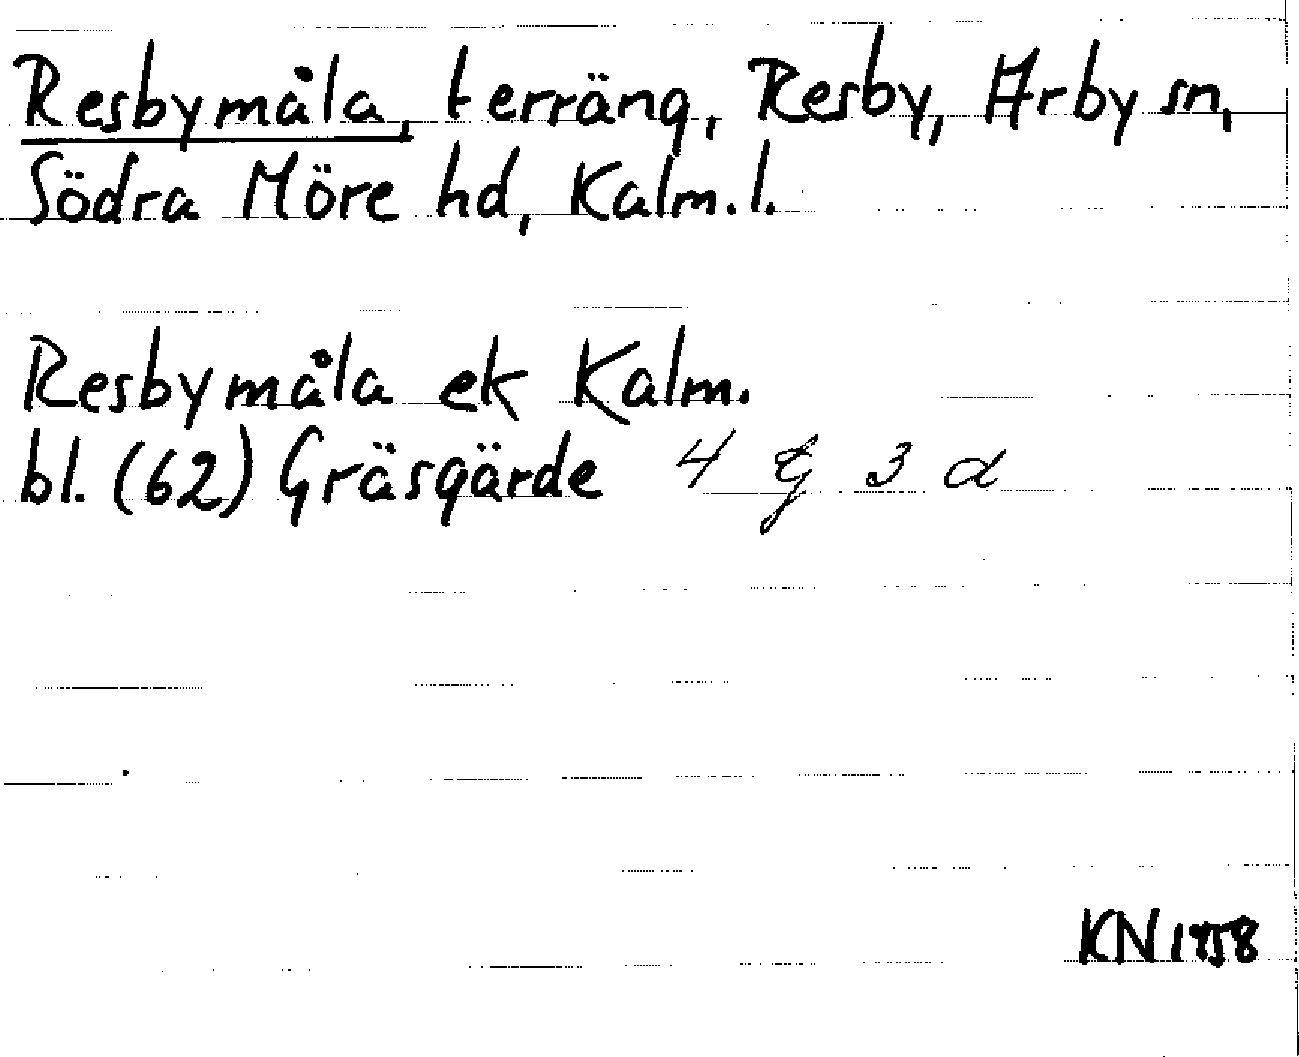 Resbymåla, terräng, Resby, Arby sn,
Södra Möre hd, Kalm.l.
Resbymåla ek Kalm.
bl. (62) Gräsgärde 4 G 3 d
KN 1958